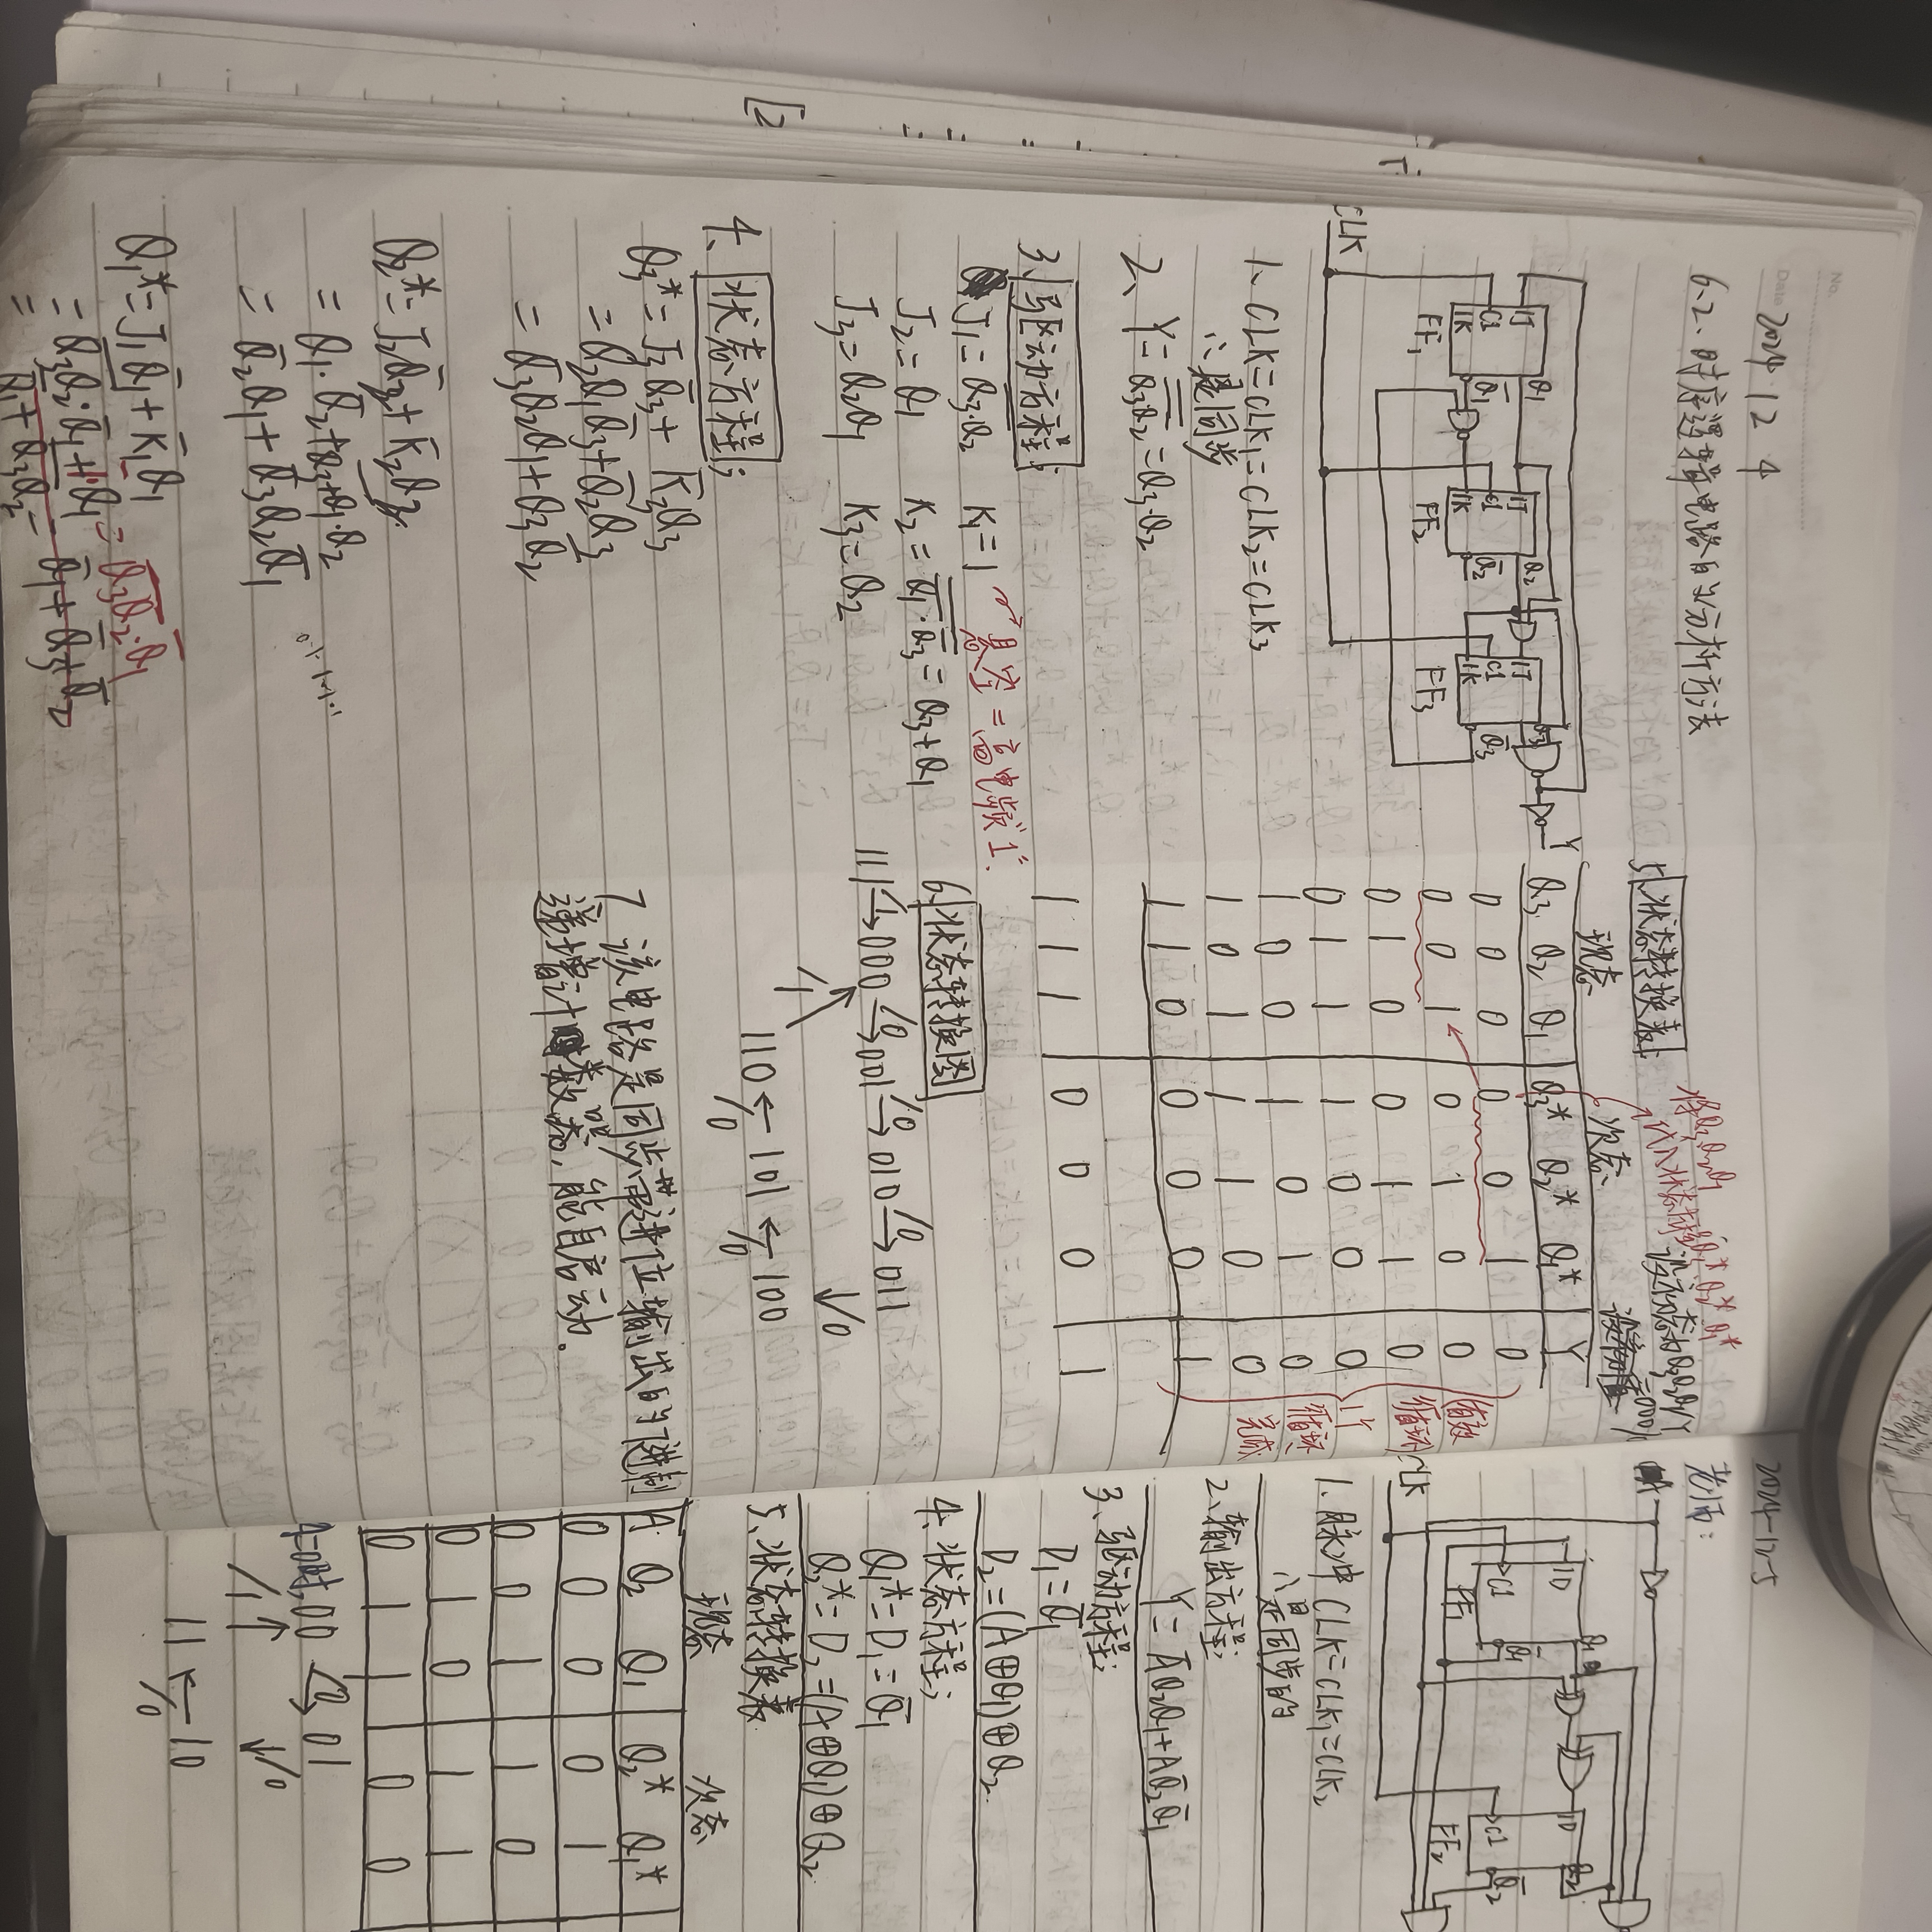 No.
Date 2024 12 4
6.2、时序逻辑电路的分析方法
Y
1J Q₁ 1J Q₂ 1J Q₃
C1 Q̅₁ C1 Q̅₂ C1 Q̅₃
1K 1K 1K
FF₁ FF₂ FF₃
CLK
1、CLK=CLK₁=CLK₂=CLK₃
∴是同步
2、Y=\overline{\overline{Q₃·Q₂}}=Q₃·Q₂
3、驱动方程;
J₁=\overline{Q₃·Q₂} K₁=1 悬空=高电频"1".
J₂=Q₁ K₂=\overline{Q̅₁·Q̅₃}=Q₃+Q₁
J₃=Q₂Q₁ K₃=Q₂
4、状态方程;
Q₃*=J₃Q̅₃+K̅₃Q₃
=Q₂Q₁Q̅₃+Q̅₂Q₃
=Q̅₃Q₂Q₁+Q₃Q̅₂
Q₂*=J₂Q̅₂+K̅₂Q₂
=Q₁·Q̅₂+\overline{Q₃+Q₁}·Q₂
=Q̅₂Q₁+Q̅₃Q₂Q̅₁
Q₁*=J₁Q̅₁+K̅₁Q₁
=\overline{Q₃Q₂}·Q̅₁+1̅·Q₁=\overline{Q₃Q₂}·Q̅₁
=Q̅₁+\overline{Q₃Q₂}=Q̅₁+Q̅₃+Q̅₂
将Q₃Q₂Q₁
代入状态方程Q₃*Q₂*Q₁*
5、状态转换表: 设初态为Q₃Q₂Q₁/Y
=000/
现态 次态
Q₃ Q₂ Q₁ Q₃* Q₂* Q₁* Y
0 0 0 0 0 1 0
0 0 1 0 1 0 0
0 1 0 0 1 1 0
0 1 1 1 0 0 0
1 0 0 1 0 1 0
1 0 1 1 1 0 0
1 1 0 0 0 0 1
1 1 1 0 0 0 1
有效
循环
1个
循环
完成
6、状态转换图
111 /1→ 000 /0→ 001 /0→ 010 /0→ 011
/1 ↓/0
110 ← 101 ← 100
/0 /0
7、该电路是同步带进位输出的7进制
递增计数器,能自启动。
[2
2024-12-5
老师:
A
1D Q₁ 1D Q₂
C1 Q̅₁ C1 Q̅₂
FF₁ FF₂
CLK
1、脉冲 CLK=CLK₁=CLK₂
∴是同步的
2、输出方程;
Y=A̅Q₂Q₁+AQ̅₂Q̅₁
3、驱动方程;
D₁=Q̅₁
D₂=(A⊕Q₁)⊕Q₂
4、状态方程;
Q₁*=D₁=Q̅₁
Q₂*=D₂=(A⊕Q₁)⊕Q₂
5、状态转换表
现态 次态
A Q₂ Q₁ Q₂* Q₁*
0 0 0 0 1
0 0 1 1 0
0 1 0 1 1
0 1 1 0 0
A=0时,00 /0→ 01
/1↑ ↓/0
11 ← 10
/0